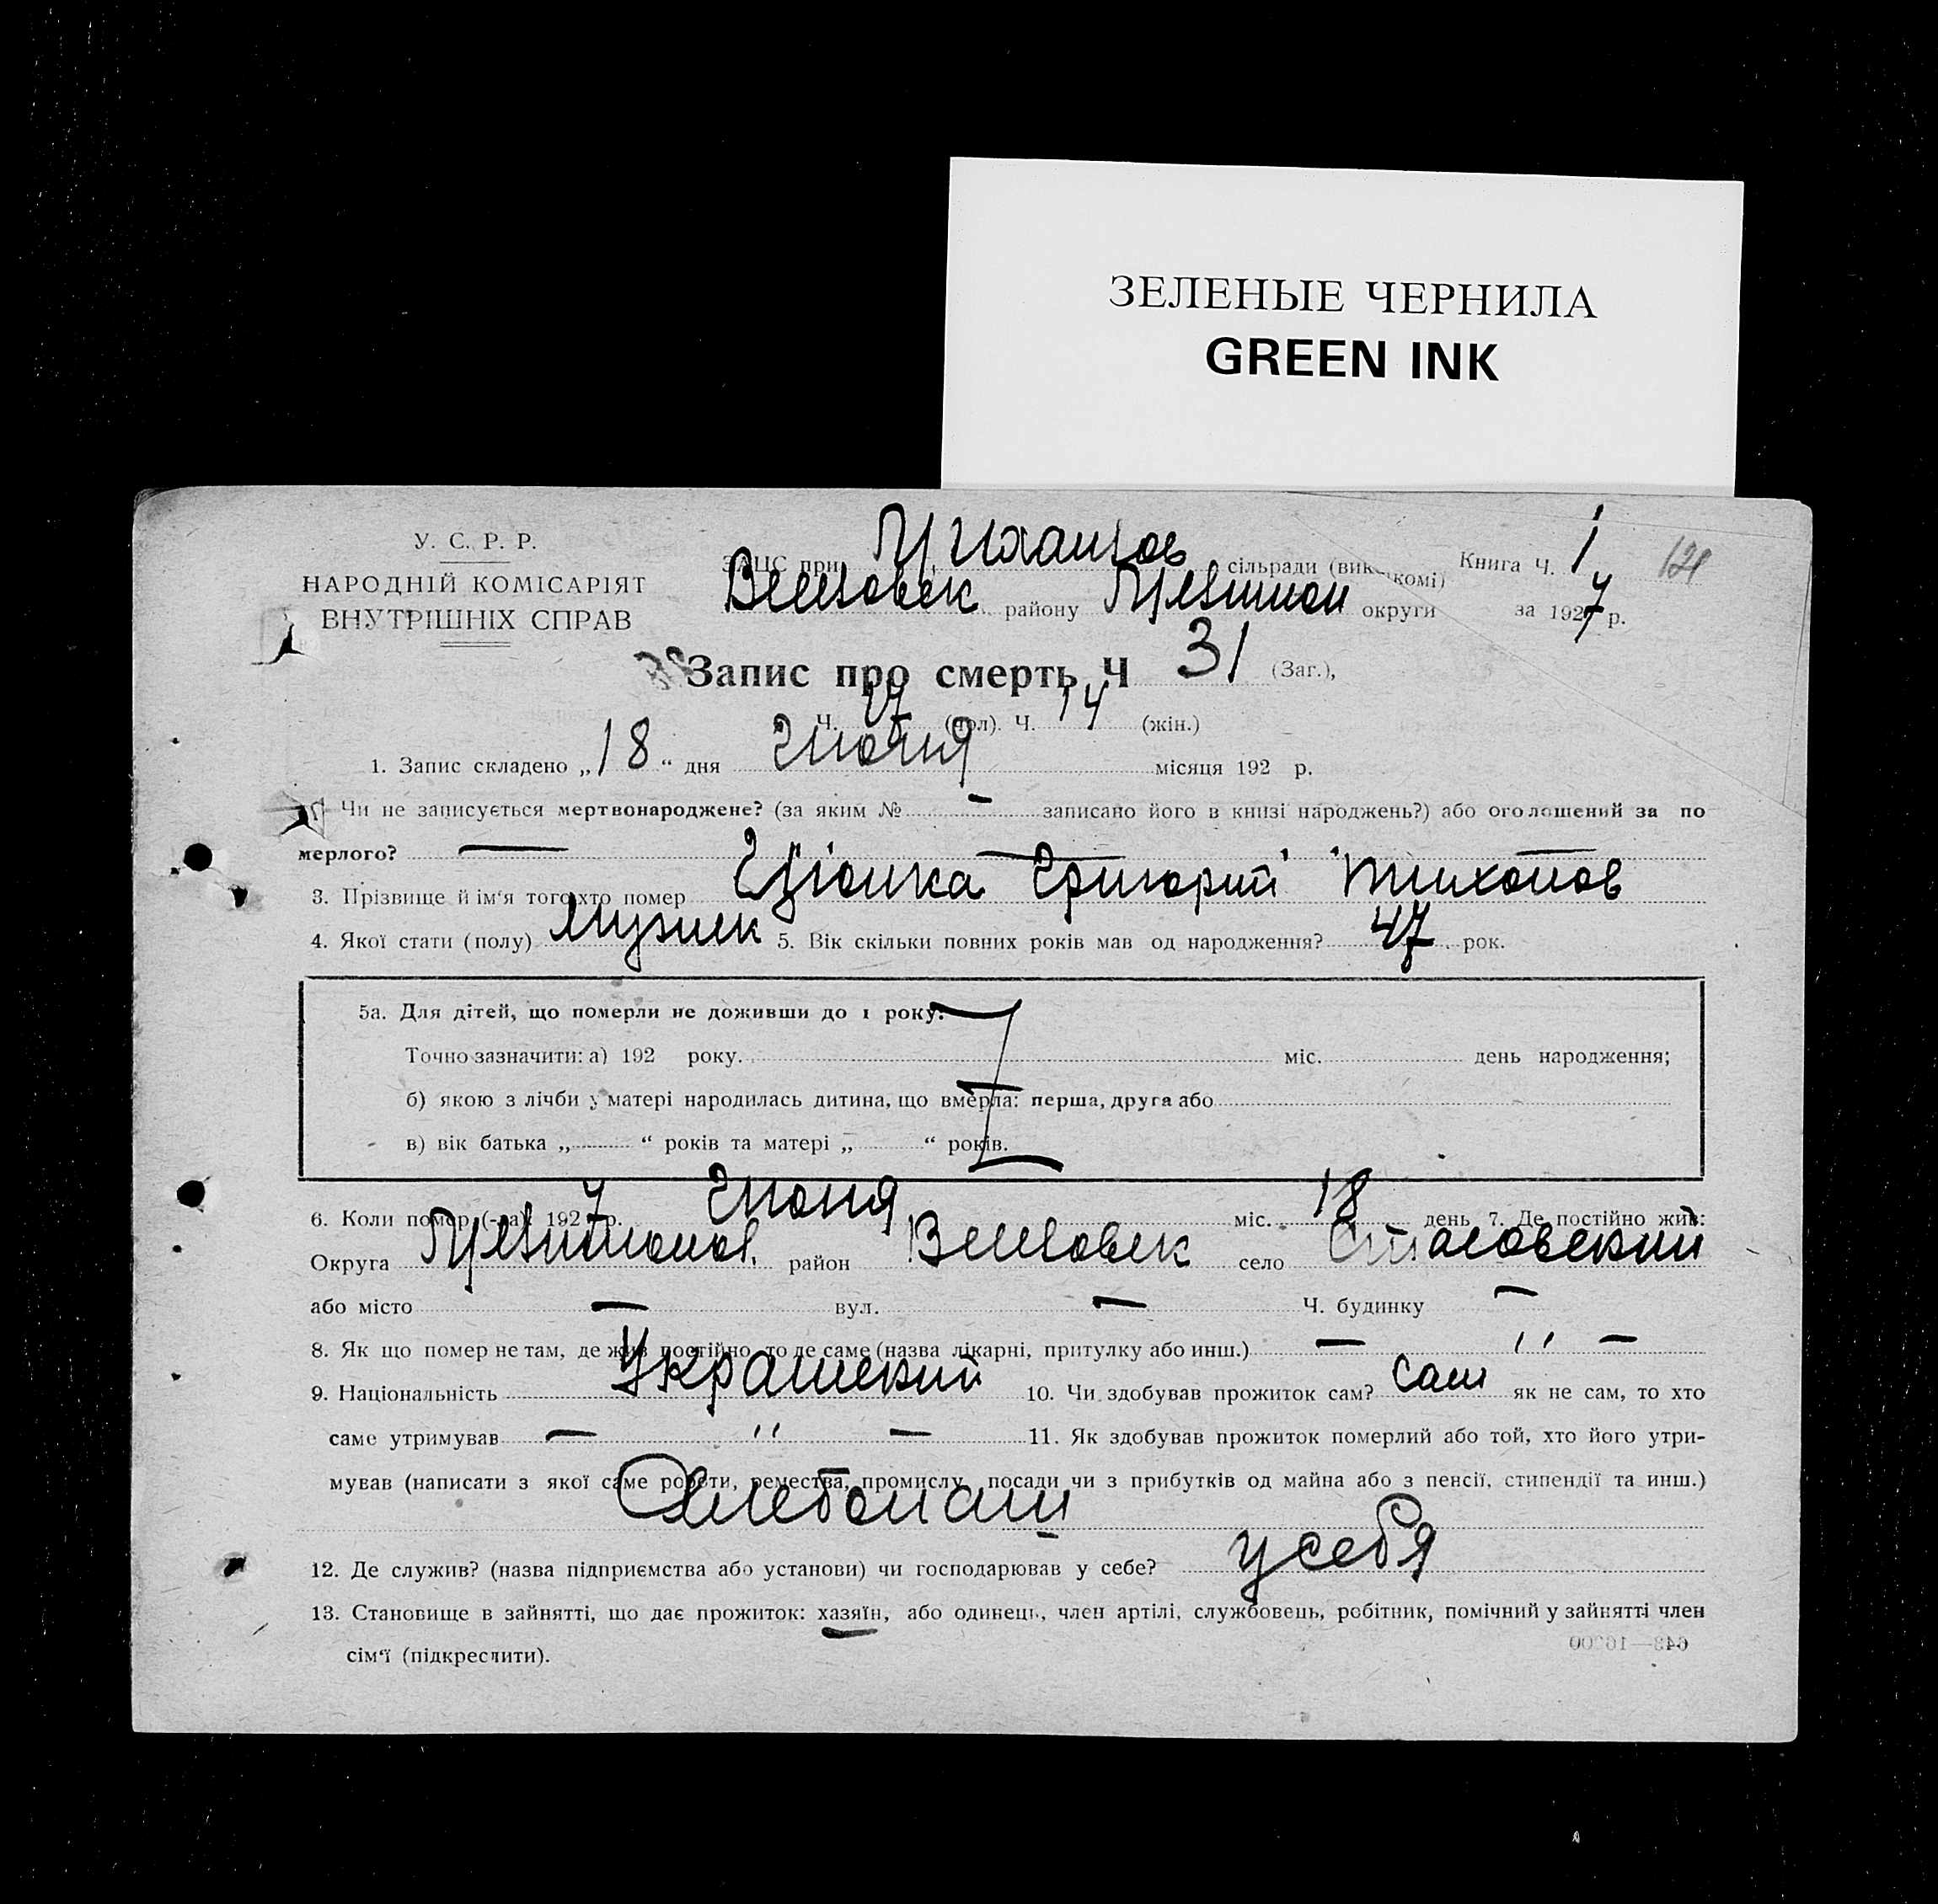 ЗЕЛЕНЫЕ ЧЕРНИЛА
GREEN INK
У. С. Р. Р.
НАРОДНІЙ КОМІСАРІЯТ
ВНУТРІШНІХ СПРАВ
ЗАЦС при сільради (вик комі)
району округи
Книга Ч. 1
121
за 1927 р.
Запис про смерть Ч 31 (Заг.),
Ч. 17 (чол). Ч. 14 (жін.)
1. Запис складено „18“ дня Июня місяця 192 р.
Чи не записується мертвонароджене? (за яким № — записано його в книзі народжень?) або оголошений за по
мерлого? —
3. Прізвище й ім'я того хто помер Григорий Тихонов
4. Якої стати (полу) мужск 5. Вік скільки повних років мав од народження? 47 рок.
5а. Для дітей, що померли не доживши до 1 року:
Точно зазначити: а) 192 року. міс. день народження;
б) якою з лічби у матері народилась дитина, що вмерла: перша, друга або
в) вік батька „ “ років та матері „ “ років.
6. Коли помер (-ла) 1927 р. Июня міс. 18 день 7. Де постійно жив:
Округа район село Стасовский
або місто — вул. — Ч. будинку —
8. Як що помер не там, де жив постійно, то де саме (назва лікарні, притулку або инш.) — ,, —
9. Національність Украинский 10. Чи здобував прожиток сам? сам як не сам, то хто
саме утримував — ,, — 11. Як здобував прожиток померлий або той, хто його утри-
мував (написати з якої саме роботи, ремества, промислу, посади чи з прибутків од майна або з пенсії, стипендії та инш.)
12. Де служив? (назва підприємства або установи) чи господарював у себе? у себя
13. Становище в зайнятті, що дає прожиток: хазяїн, або одинець, член артілі, службовець, робітник, помічний у зайнятті член
сім'ї (підкреслити).